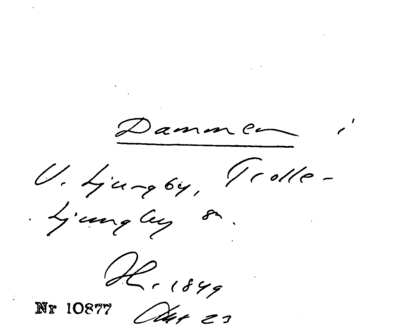 Dammen i
V. Ljungby, Trolle-
Ljungby sn.
1849
Nr 10877